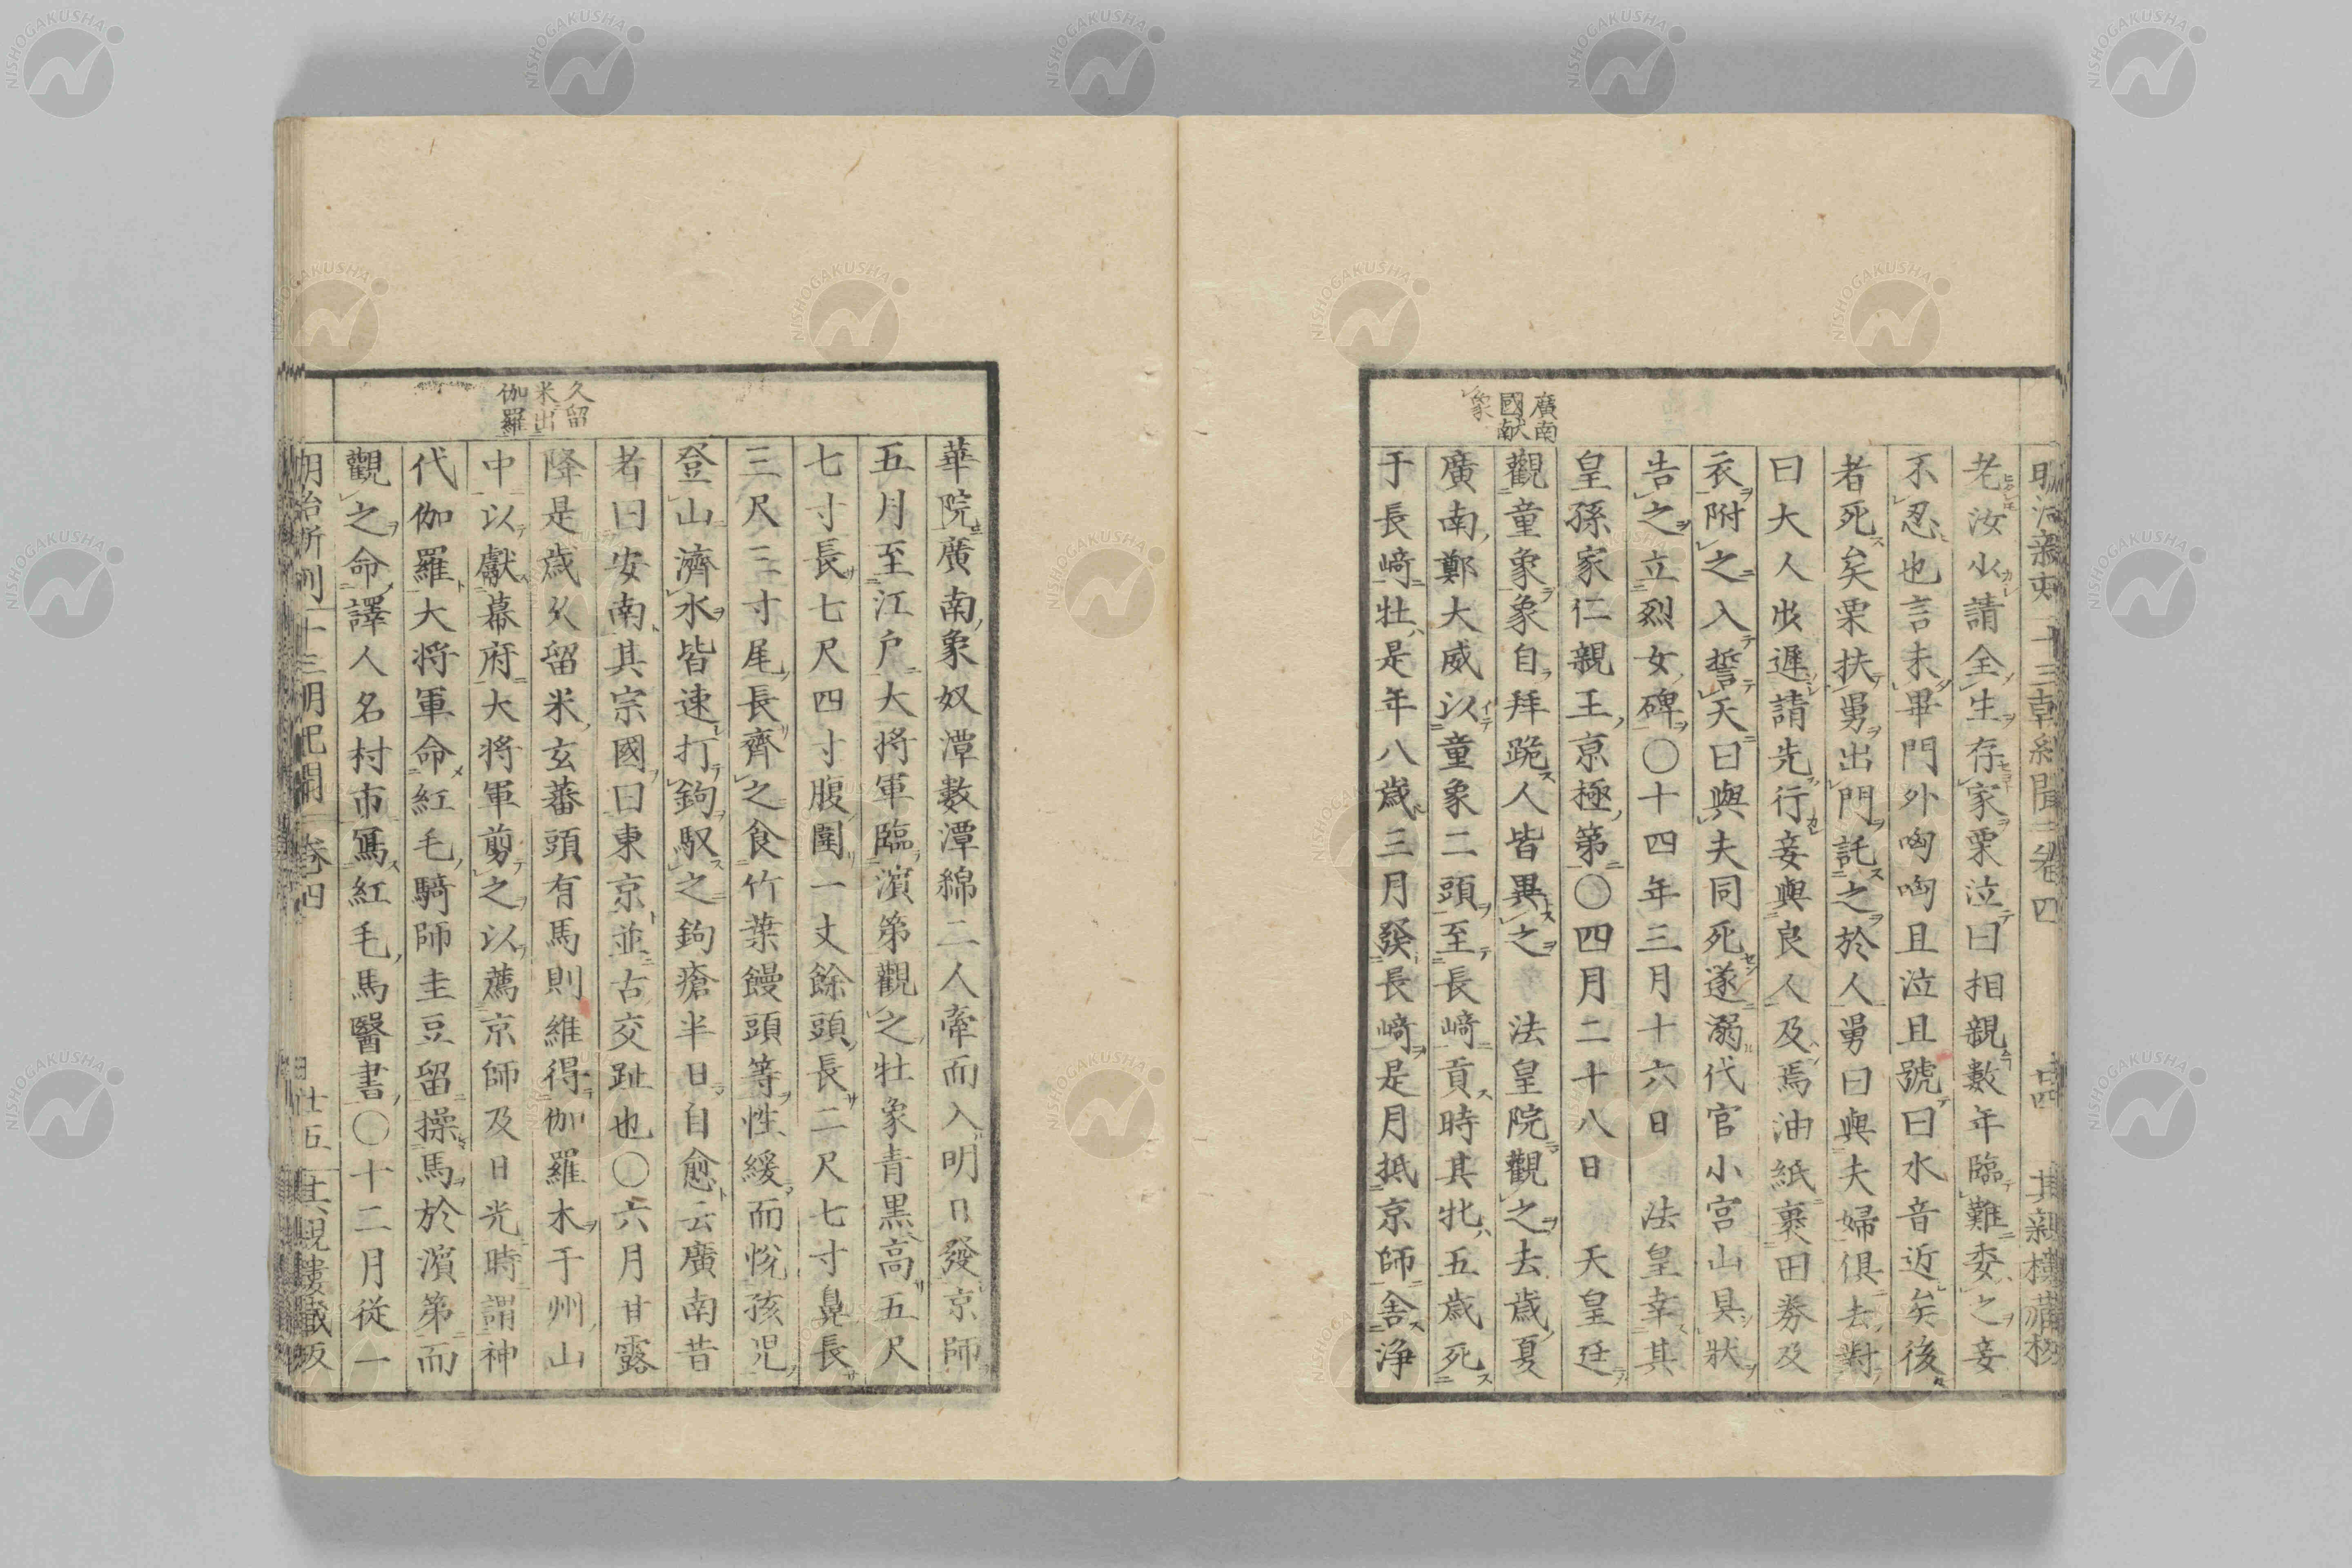 廣南
國献
象
老汝少請全生存家栗泣曰相親數年臨難委之妾
不忍也言未畢門外哅哅且泣且號曰水音近矣後
者死矣栗扶舅出門託之於人舅曰與夫婦俱去對
曰大人步遲請先行妾與良人及焉油紙裹田券及
衣附之入誓天曰與夫同死遂溺代官小宮山具狀
告之立烈女碑〇十四年三月十六日 法皇幸其
皇孫家仁親王京極第〇四月二十八日 天皇廷
觀童象象自拜跪人皆異之 法皇院觀之去歳夏
廣南鄭大威以童象二頭至長﨑貢時其牝五歳死
于長﨑牡是年八歳三月發長﨑是月抵京師舍浄
久留
米出
伽羅
華院廣南象奴潭數潭綿二人牽而入明日發京師
五月至江戸大将軍臨濵第觀之牡象青黒高五尺
七寸長七尺四寸腹圍一丈餘頭長二尺七寸鼻長
三尺三寸尾長齊之食竹葉饅頭等性緩而悦孩児
登山濟水皆速打鉤馭之鉤瘡半日自愈云廣南昔
者曰安南其宗國曰東京並古交趾也〇六月甘露
降是歳久留米玄蕃頭有馬則維得伽羅木于州山
中以獻幕府大将軍剪之以薦京師及日光時謂神
代伽羅大将軍命紅毛騎師圭豆留操馬於濵第而
觀之命譯人名村市寫紅毛馬醫書〇十二月從一
NISHOGAKUSHA